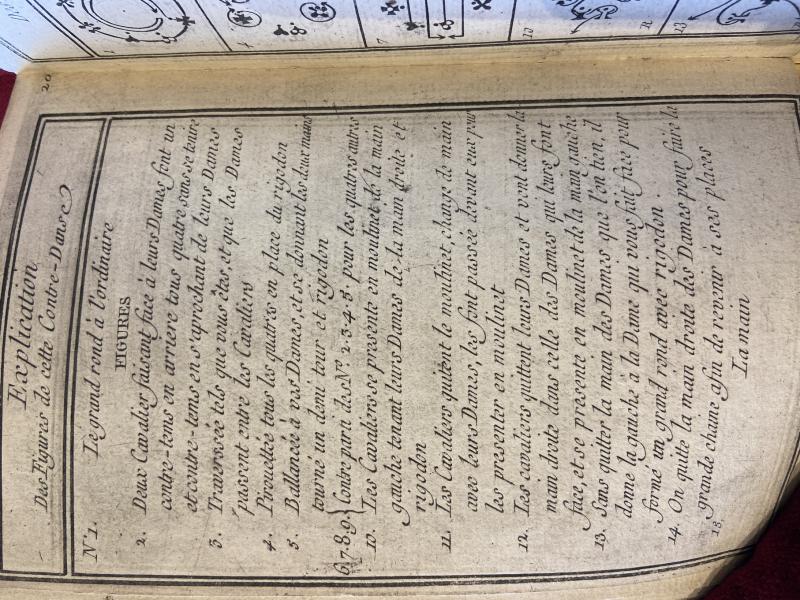 20
Explication
Des Figures de cette Contre-Danse
Nº1. Le grand rond à l'ordinaire
FIGURES
2. Deux Cavalier faisant face à leurs Dames font un
contre-tems en arriere tous quatre sans se tourner
et contre-tems en s'aprochant de leurs Dames
3. Traversée tels que vous êtes, et que les Dames
passent entre les Cavaliers
4. Pirouettée tous les quatres en place du rigodon
5. Ballancée à vos Dames, et se donnant les deux mains
tourne un demi tour et rigodon
6.7.8.9. Contre parti des Nos 2.3.4.5. pour les quatres autres
10. Les Cavaliers se presente en moulinet de la main
gauche tenant leurs Dames de la main droite et
rigodon
11. Les Cavaliers quitent le moulinet, change de main
avec leurs Dames, les font passée devant eux pour
les presenter en moulinet
12. Les cavaliers quittent leurs Dames et vont donner la
main droite dans celle des Dames qui leurs font
face, et se presente en moulinet de la main gauche
13. Sans quitter la main des Dames que l'on tien, il
donne la gauche à la Dame qui vous fait face pour
forme un grand rond avec rigodon
14. On quitte la main droite des Dames pour faire la
15. grande chaine afin de revenir à ses places
La main
1
4
7
10
R
13